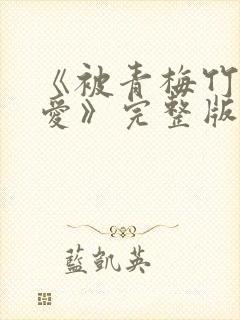 《被青梅竹
爱》完整版
藍凱英